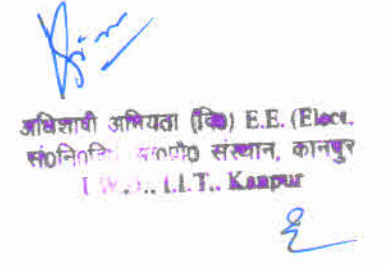 अधिशाषी अभियंता (वि०) E.E. (Elect.
संस्थान, कानपुर
I.W.D., I.I.T., Kanpur